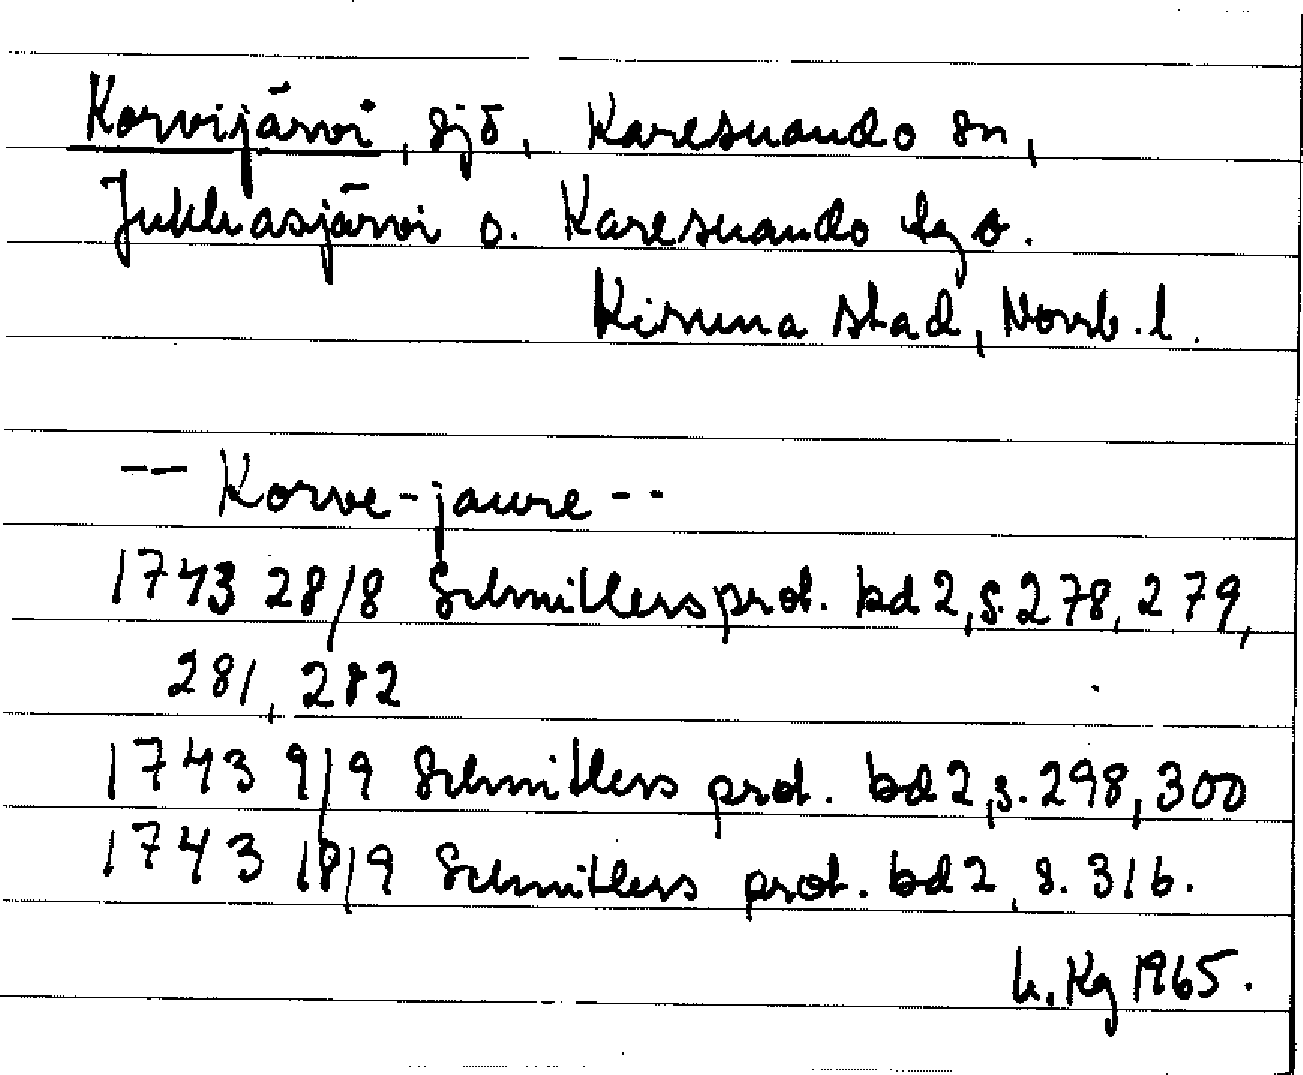 Korvijärvi, sjö, Karesuando sn,
Jukkasjärvi o. Karesuando tg o.
Kiruna stad, Norrb. l.
-- Korve-jaure --
1743 28/8 Schnitlers prot. bd 2, s. 278, 279,
281, 282
1743 9/9 Schnitlers prot. bd 2, s. 298, 300
1743 18/9 Schnitlers prot. bd 2, s. 316.
Kg 1965.